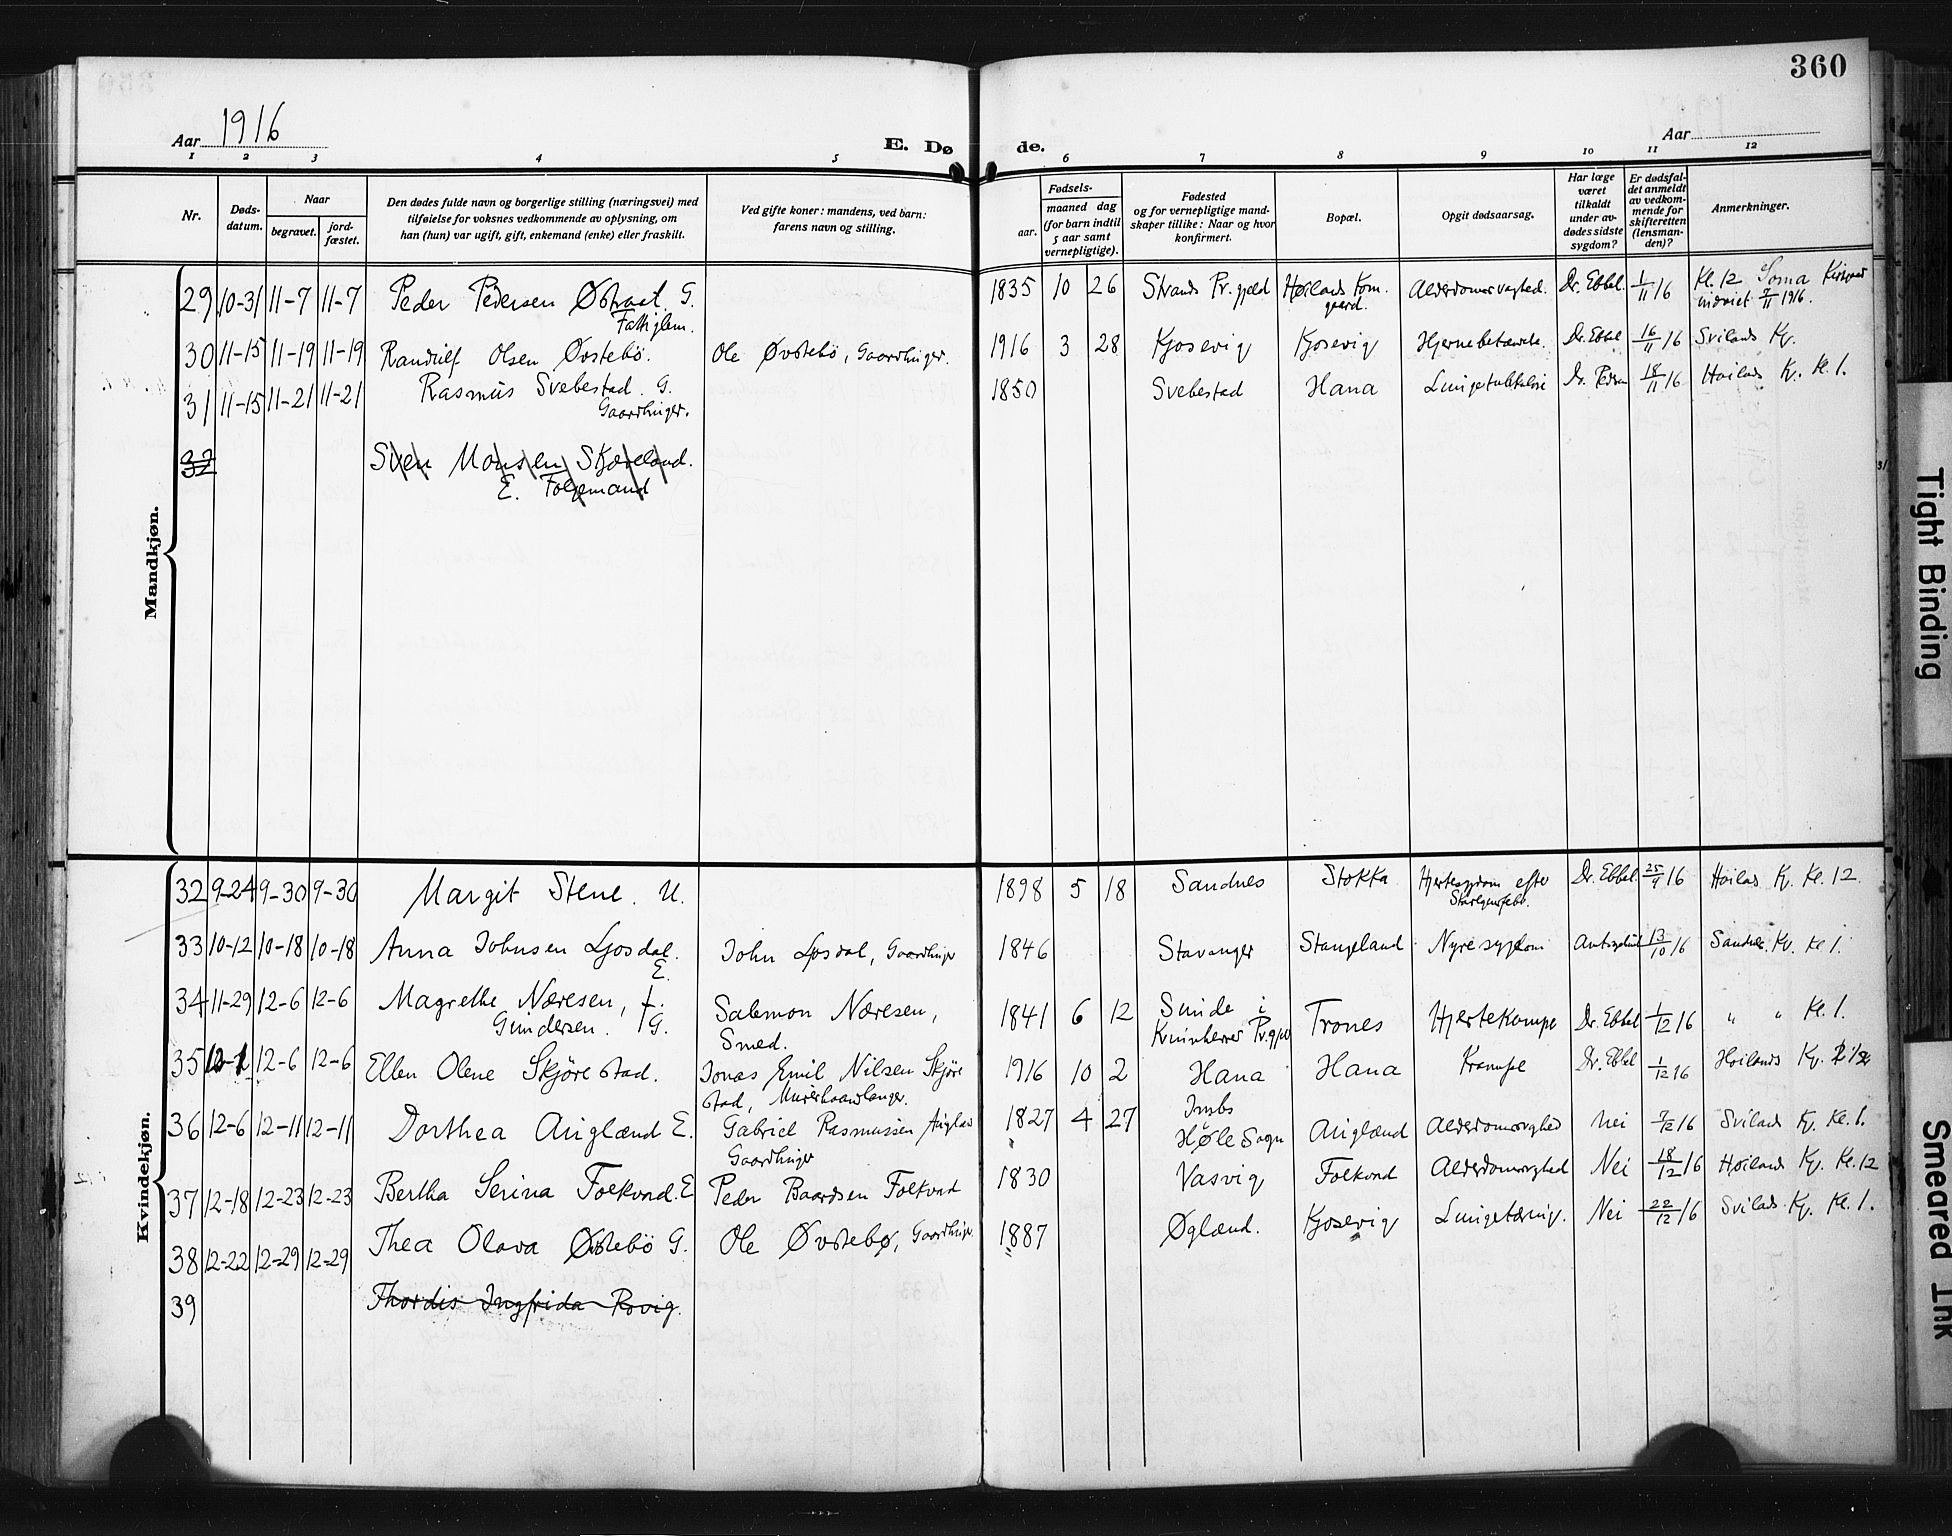 360
Aar 1916
E. Døde.
Aar
1 2 3 4 5 6 7 8 9 10 11 12
Nr.
Døds-
datum.
Naar
begravet.
jord-
fæstet.
Den dødes fulde navn og borgerlige stilling (næringsvei) med
tilføielse for voksnes vedkommende av oplysning, om
han (hun) var ugift, gift, enkemand (enke) eller fraskilt.
Ved gifte koner: mandens, ved barn:
farens navn og stilling.
Fødsels-
aar.
maaned dag
(for barn indtil
5 aar samt
vernepligtige).
Fødested
og for vernepligtige mand-
skaper tillike: Naar og hvor
konfirmert.
Bopæl.
Opgit dødsaarsag.
Har læge
været
tilkaldt
under av-
dødes sidste
sygdom?
Er dødsfal-
det anmeldt
av vedkom-
mende for
skifteretten
(lensman-
den)?
Anmerkninger.
Mandkjøn.
29 10-31 11-7 11-7 Peder Pedersen Østraat G. 1835 10 26 Strands Pr.gjeld Høilands Kom. Alderdomssvaghed. Dr. Ebbel 1/11 16 Kl. 12 Soma
Fattiglem. gaard. indviet 7/11 1916.
30 11-15 11-19 11-19 Randulf Olsen Østebö. Ole Øvstebö, Gaardbruger. 1916 3 28 Kjosevig Kjosevig Hjernebetændelse. Dr. Ebbel 16/11 16 Svilands Kg.
31 11-15 11-21 11-21 Rasmus Svebestad G. 1850 Svebestad Hana 18/11 16 Høilands Kg. Kl. 1.
Gaardbruger.
32 Sven Monsen Skjæveland.
E. Folgemand
Kvindekjøn.
32 9-24 9-30 9-30 Margit Stene. U. 1898 5 18 Sandnes Stokka Hjertesygdom efter Dr. Ebbel 25/9 16 Høilands Kg. Kl. 12.
33 10-12 10-18 10-18 Anna Johnsen Lysdal. John Lysdal, Gaardbruger 1846 Stavanger Stangeland Nyresygdom 13/10 16 Sandnes Kg. Kl 1.
E.
34 11-29 12-6 12-6 Magrethe Næresen, f. Salemon Næresen, 1841 6 12 Sunde i Trones Hjertekrampe Dr. Ebbel 1/12 16 " " Kl. 1.
Gundersen. G. Smed. Kvinherred Pr.gjeld
35 12-1 12-6 12-6 Ellen Olene Skjørestad. Jonas Emil Nilsen Skjøre 1916 10 2 Hana Hana Krampe Dr. Ebbel 1/12 16 Høilands Kg.
stad, Murerhaandlanger.
36 12-6 12-11 12-11 Dorthea Auglænd E. Gabriel Rasmussen Auglænd 1827 4 27 Imbs Auglænd Alderdomssvaghed Nei 7/12 16 Svilands Kg. Kl. 1.
Gaardbruger Høle Sogn
37 12-18 12-23 12-23 Bertha Serina Folkvord. E Peder Baardsen Folkvord 1830 Vasvig Folkvord Alderdomssvaghed Nei 18/12 16 Høilands Kg. Kl. 12
38 12-22 12-29 12-29 Thea Olava Østebö G. Ole Øvstebø, Gaardbruger 1887 Øglænd. Kjosevig Lungetæring. Nei 22/12 16 Svilands Kg. Kl. 1.
39 Thordis Ingfrida Rovig.
Tight Binding
Smeared Ink